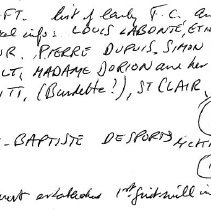 FT. list of early F.C. an
al info: LOUIS LABONTE, ETN
UR. PIERRE DUPUIS, SIMON
LT; MADAME DORION and her
ITT, (Burdette?), ST CLAIR
E-BAPTISTE DESPORTS
established 1st grist mill in